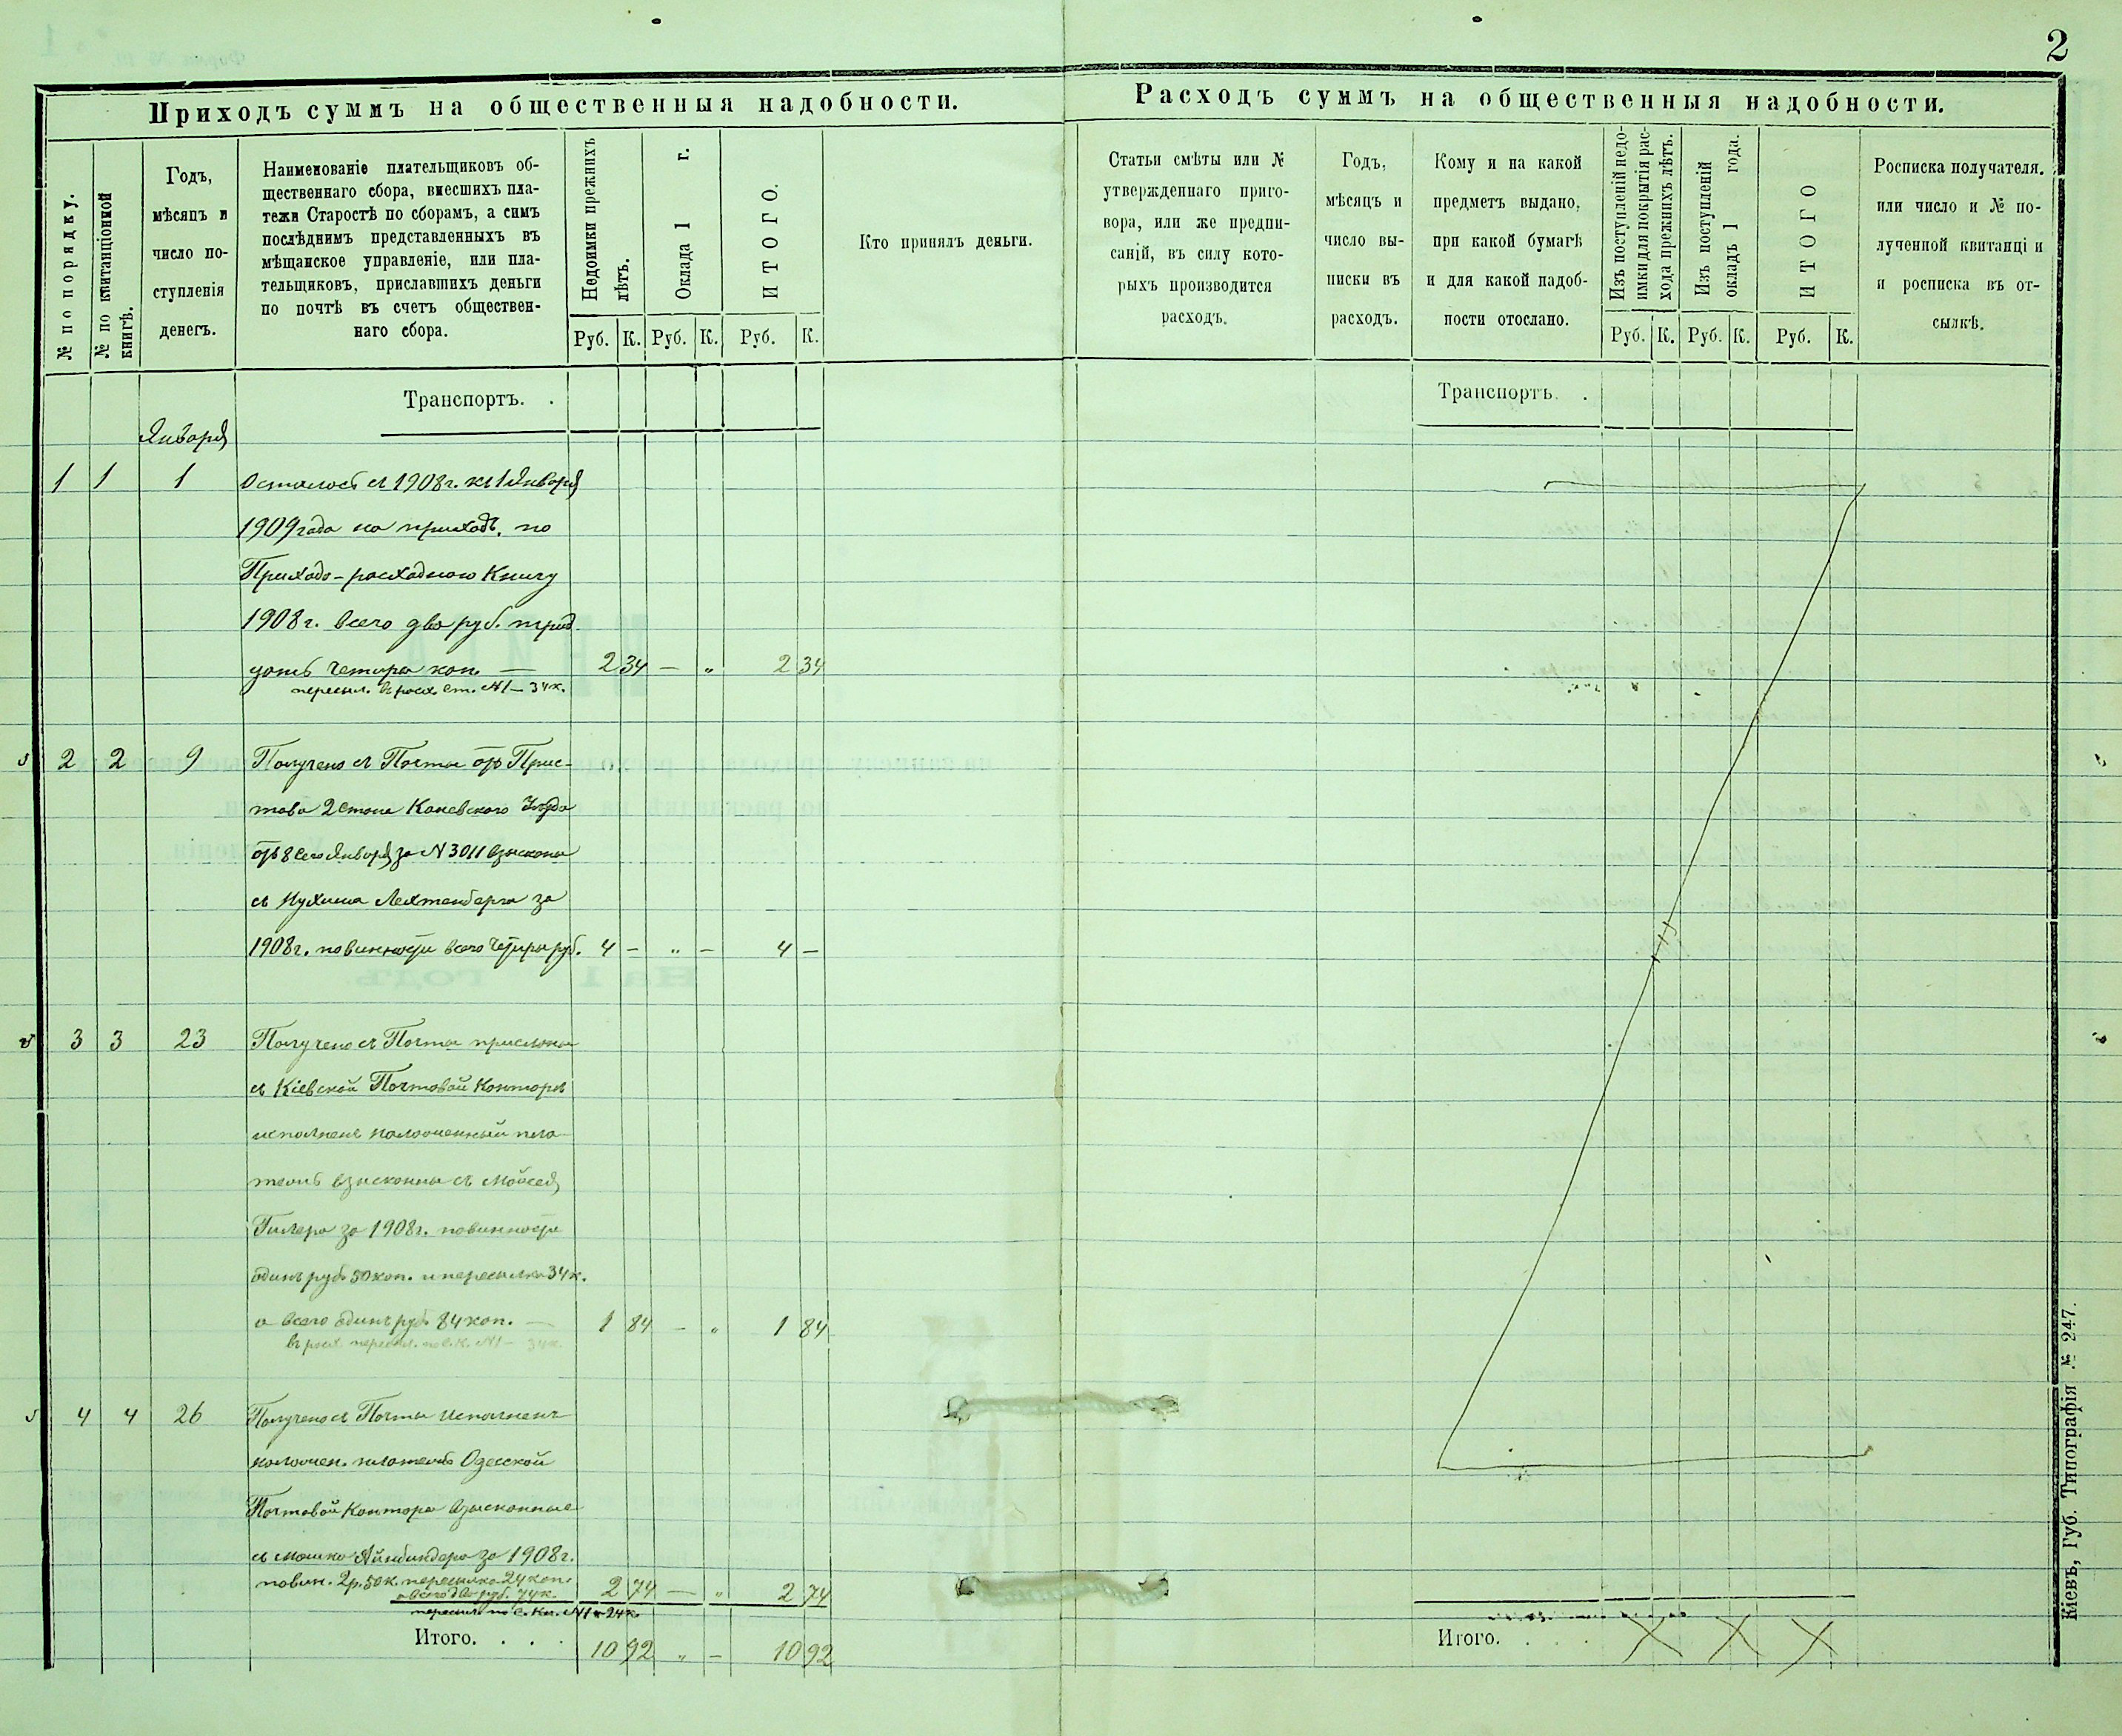 2
Приходъ суммъ на общественныя надобности.
№ по порядку.
№ по квитанціонной книгѣ.
Годъ,
мѣсяцъ и
число по-
ступленія
денегъ.
Наименованіе плательщиковъ об-
щественнаго сбора, внесшихъ пла-
тежи Старостѣ по сборамъ, а симъ
послѣднимъ представленныхъ въ
мѣщанское управленіе, или пла-
тельщиковъ, приславшихъ деньги
по почтѣ въ счетъ обществен-
наго сбора.
Недоимки прежнихъ
лѣтъ.
Оклада 1 г.
ИТОГО.
Руб. К. Руб. К. Руб. К.
Кто принялъ деньги.
Транспортъ. .
Января
1 1 1 Осталось съ 1908 г. къ 1 Января
1909 года на приходъ. по
Приходо-расходною Книгу
1908 г. всего два руб. трид
цать четыре коп. — 2 34 — „ 2 34
пересыл. въ расх. ст. №1 — 34 к.
2 2 9 Получено съ Почты отъ Прис-
това 2 стана Каневского Уѣзда
отъ 8 сего Января за № 3011 взысканы
съ Лехтенберга за
1908 г. повинности всего Четыре руб. 4 — „ — 4 —
3 3 23 Получено съ Почты присланы
съ Кіевской Почтовой Конторы
исполненъ наложенный пла-
тежъ взысканны съ Мойсея
Гилера за 1908 г. повинности
одинъ руб. 50 коп. и пересылка 34 к.
а всего одинъ руб. 84 коп. — 1 84 — „ 1 84
въ расх. пересыл. №1 — 34 к.
4 4 26 Получено съ Почты исполненъ
наложен. платежъ Одесской
Почтовой Контора взысканные
съ Мошко Айнбиндера за 1908 г.
повин. 2 р. 50 к. пересылка 24 коп.
а всего два руб. 74 к. 2 74 — „ 2 74
пересыл. по с. кн. №1 — 24 к.
Итого. . . . 10 92 „ — 10 92
Расходъ суммъ на общественныя надобности.
Статьи смѣты или №
утвержденнаго приго-
вора, или же предпи-
саній, въ силу кото-
рыхъ производится
расходъ.
Годъ,
мѣсяцъ и
число вы-
писки въ
расходъ.
Кому и на какой
предметъ выдано,
при какой бумагѣ
и для какой надоб-
ности отослано.
Изъ поступленій недо-
имки для покрытія рас-
хода прежнихъ лѣтъ.
Изъ поступленій
окладъ 1 года.
ИТОГО
Руб. К. Руб. К. Руб. К.
Росписка получателя.
или число и № по-
лученной квитанціи
и росписка въ от-
сылкѣ.
Транспортъ. .
Итого. . . .
Кіевъ, Губ. Типографія № 247.